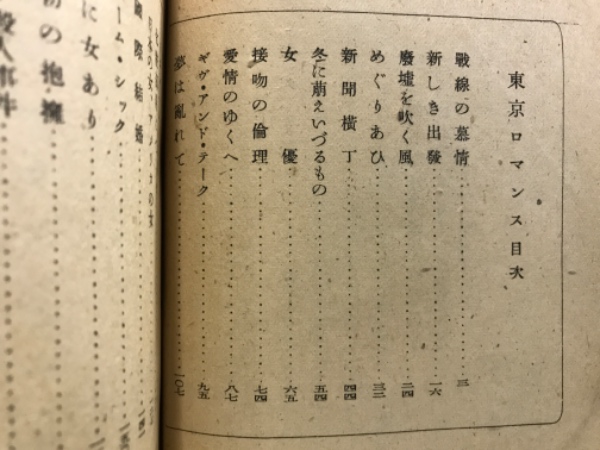 東京ロマンス目次
戰線の慕情……三
新しき出發……一六
廢墟を吹く風……二四
めぐりあひ……三二
新聞橫丁……四四
冬に萠えいづるもの……五四
女優……六五
接吻の倫理……七四
愛情のゆくへ……八七
ギヴ・アンド・テーク……九五
夢は亂れて……一〇七
國際結婚
ーム・シック
に女あり
初の抱擁
殺人事件